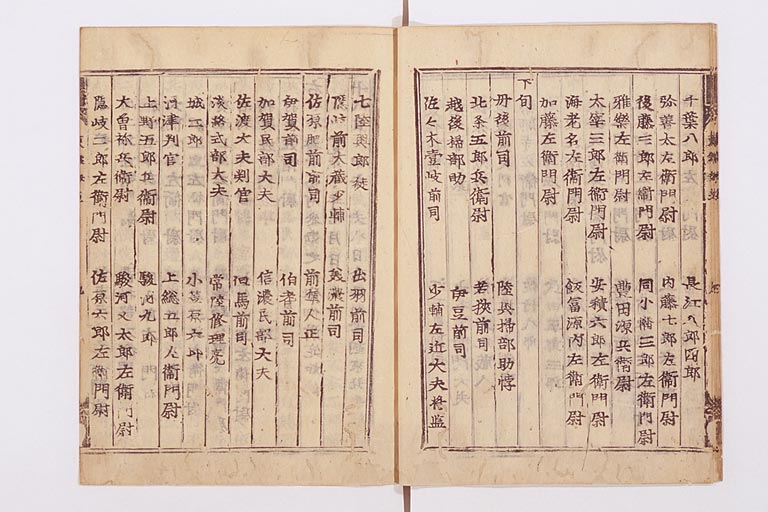 千葉八郎左　門尉　長江八郎四郎
弥善太左衛門尉　内藤七郎左衛門尉
後藤三郎左衛門尉　同小　三郎左衛門尉
雅楽左衛門尉　豊田源兵衛尉
太宰三郎左衛門尉　安積六郎左衛門尉
海老名左衛門尉　飯富源内左衛門尉
加藤左衛門尉
下旬
丹後前司　陸奥掃部助
北条五郎兵衛尉　若狭前司
越後掃部助　伊豆前司
佐々木壹岐前司　少輔左近大夫将監
十七　陸奥　郎　出羽前司
前大蔵少輔　前司
佐　前司　前隼人正
伊賀前司　伯耆前司
加賀民部大夫　信濃民部大夫
佐渡大夫判官　但馬前司
淡路式部大夫　常陸修理亮
城二郎　小　六郎
河津判官　上総五郎左衛門尉
上野五郎兵衛尉　駿河九郎
大曽祢兵衛尉　駿河又太郎左衛門尉
隠岐三郎左衛門尉　佐原六郎左衛門尉